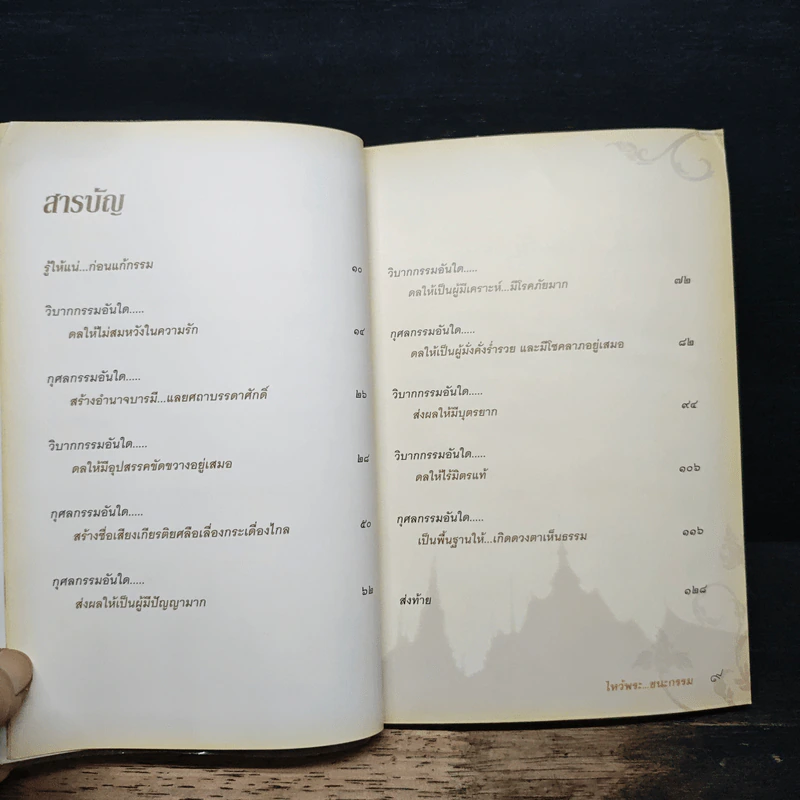 สารบัญ
รู้ให้แน่...ก่อนแก้กรรม ๑๐
วิบากกรรมอันใด.....
ดลให้ไม่สมหวังในความรัก ๑๔
กุศลกรรมอันใด.....
สร้างอำนาจบารมี...และยศถาบรรดาศักดิ์ ๒๖
วิบากกรรมอันใด.....
ดลให้มีอุปสรรคขัดขวางอยู่เสมอ ๒๘
กุศลกรรมอันใด.....
สร้างชื่อเสียงเกียรติยศลือเลื่องกระเดื่องไกล ๕๐
กุศลกรรมอันใด.....
ส่งผลให้เป็นผู้มีปัญญามาก ๖๒
วิบากกรรมอันใด.....
ดลให้เป็นผู้มีเคราะห์...มีโรคภัยมาก ๗๒
กุศลกรรมอันใด.....
ดลให้เป็นผู้มั่งคั่งร่ำรวย และมีโชคลาภอยู่เสมอ ๘๒
วิบากกรรมอันใด.....
ส่งผลให้มีบุตรยาก ๙๔
วิบากกรรมอันใด.....
ดลให้ไร้มิตรแท้ ๑๐๖
กุศลกรรมอันใด.....
เป็นพื้นฐานให้...เกิดดวงตาเห็นธรรม ๑๑๖
ส่งท้าย ๑๒๘
ไหว้พระ...ชนะกรรม ๙